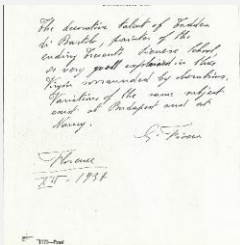 The decorative talent of Taddeo
di Bartolo, painter of the
ending Trecento Sienese School,
is very well explained in this
Virgin surrounded by cherubims.
Varieties of the same subject
exist at Budapest and at
Nancy.
G. Fiocco
Florence
XII - 1934